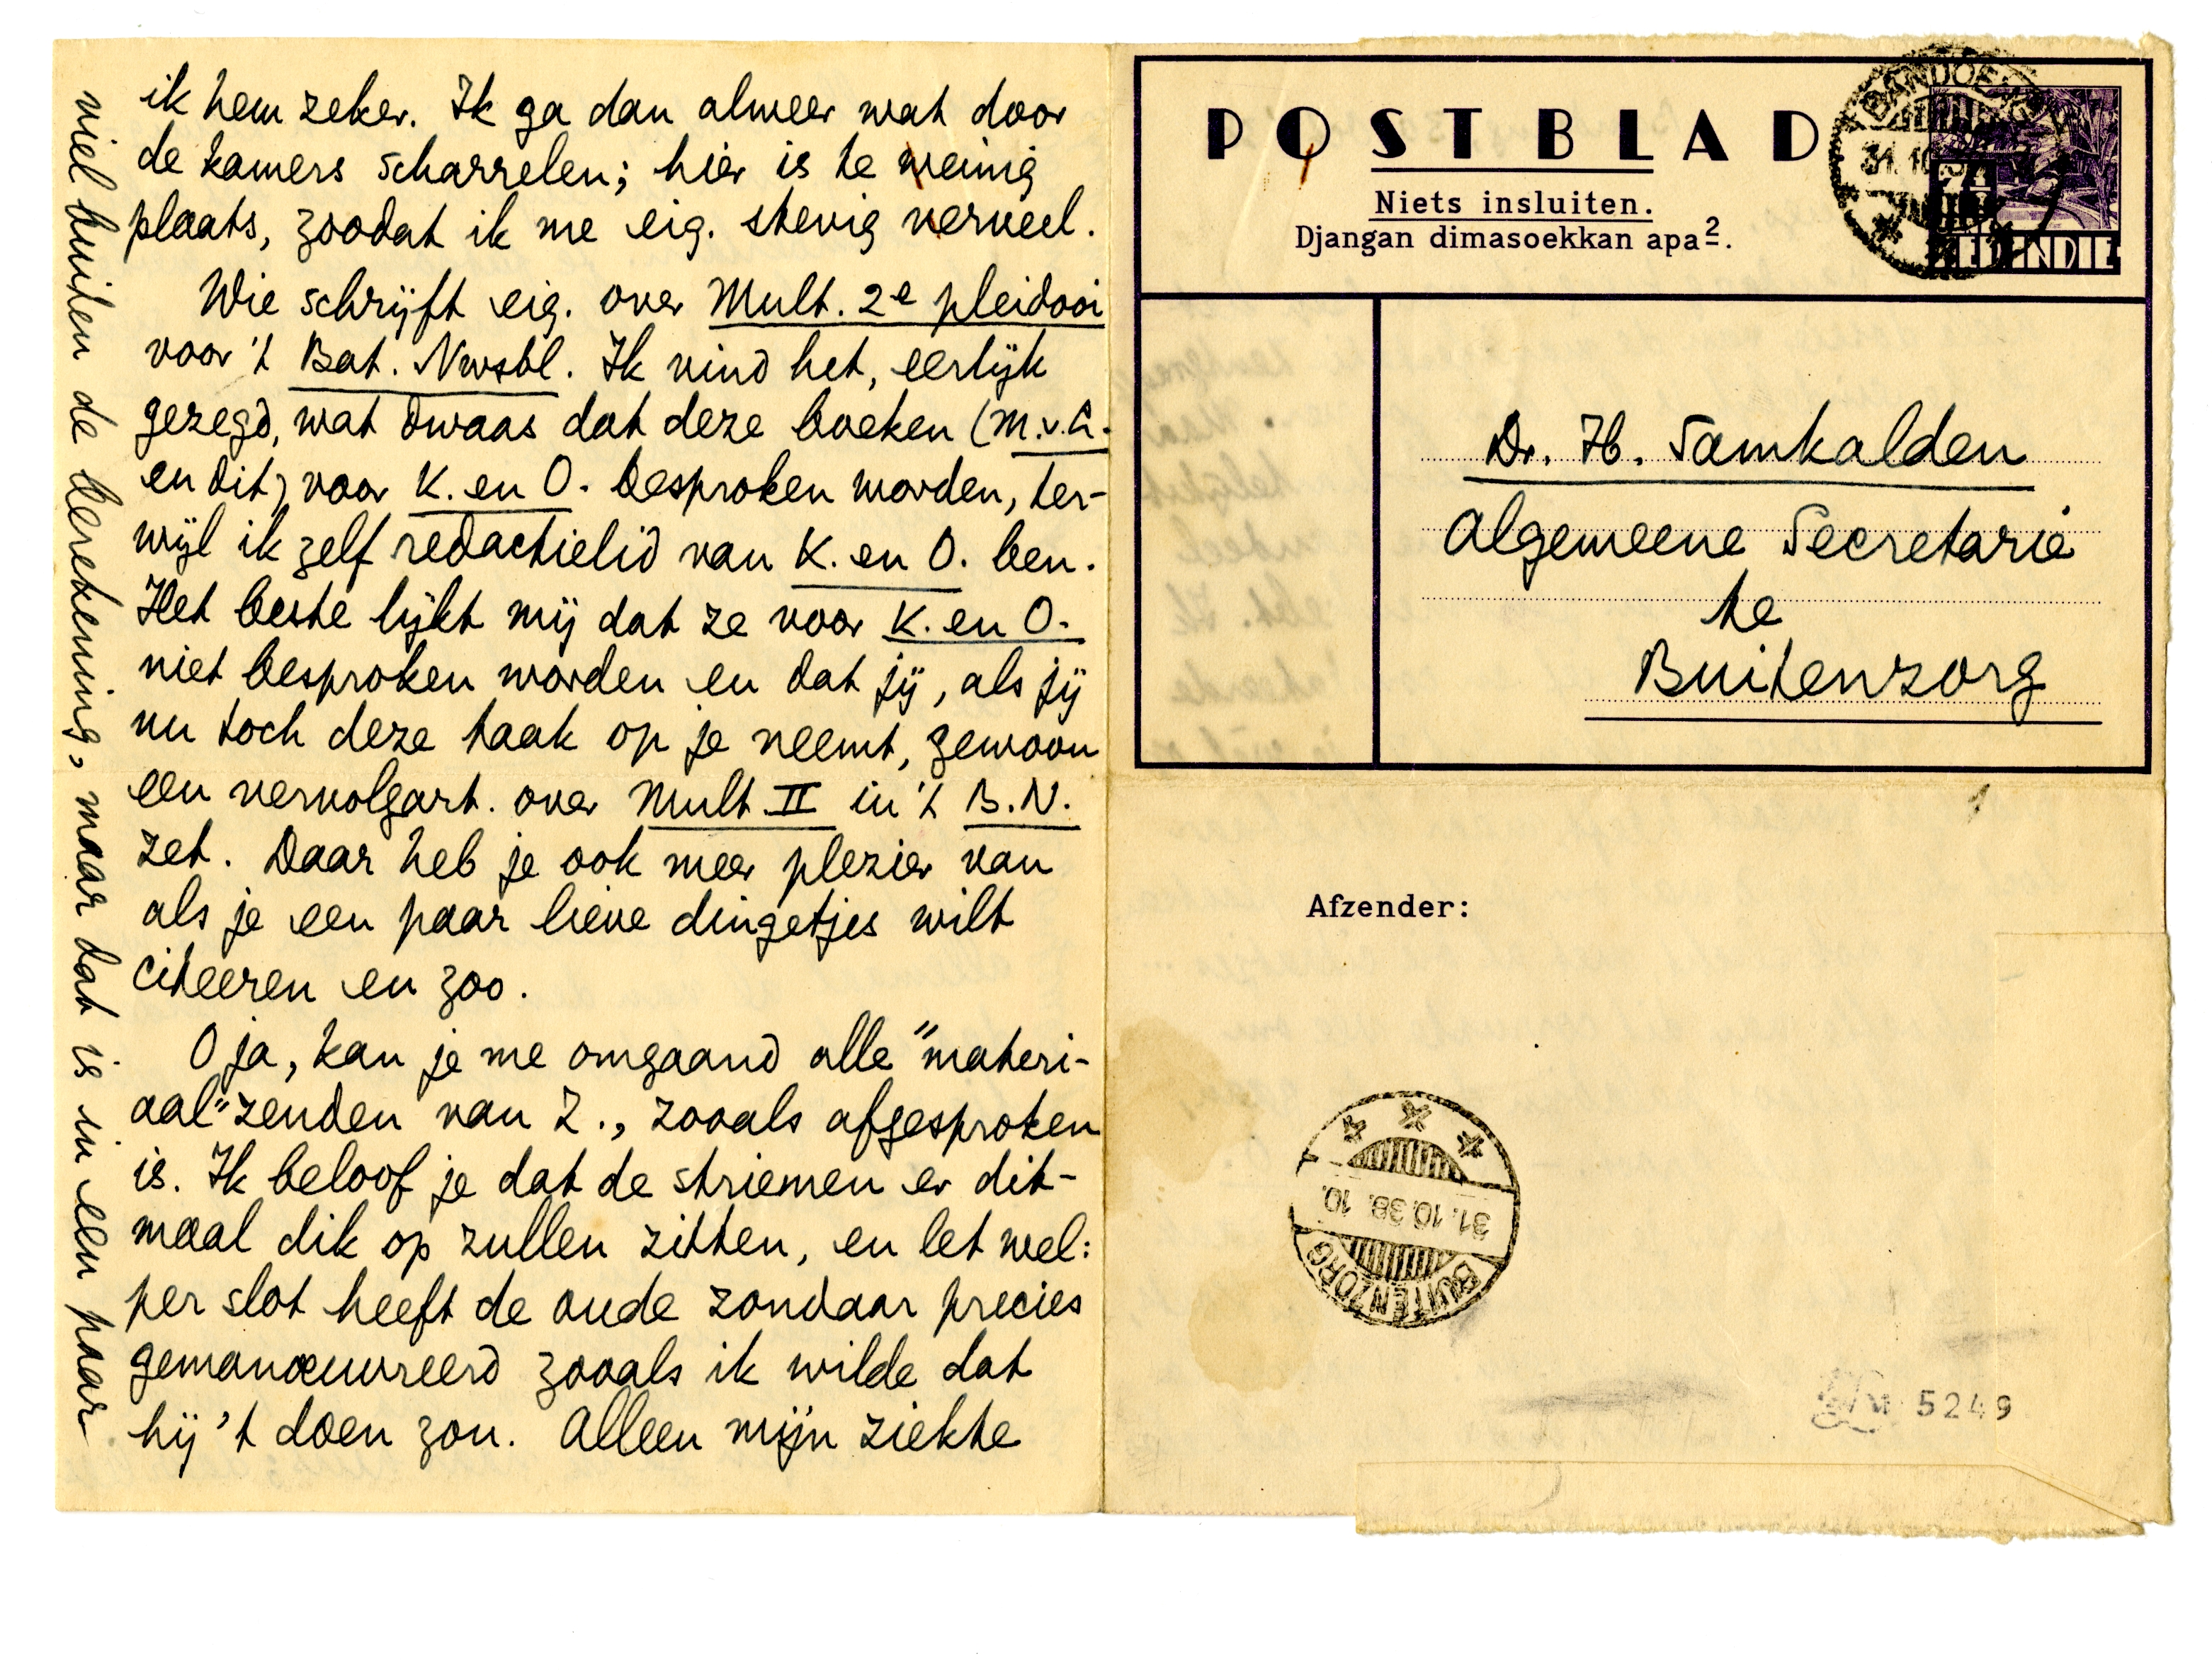 ik hem zeker. Ik ga dan alweer wat door
de kamers scharrelen; hier is te weinig
plaats, zoodat ik me eig. stevig verveel.
Wie schrijft eig. over Mult. 2e pleidooi
voor 't Bat. Nwsbl. Ik vind het, eerlijk
gezegd, wat dwaas dat deze boeken (M.v.L.
en dit) voor K. en O. besproken worden, ter-
wijl ik zelf redactielid van K. en O. ben.
Het beste lijkt mij dat ze voor K. en O.
niet besproken worden en dat jij, als jij
nu toch deze taak op je neemt, gewoon
een vervolgart. over Mult. II in 't B.N.
zet. Daar heb je ook meer plezier van
als je een paar lieve dingetjes wilt
citeeren en zoo.
O ja, kan je me omgaand alle "materi-
aal" zenden van Z., zooals afgesproken
is. Ik beloof je dat de striemen er dit-
maal dik op zullen zitten, en let wel:
per slot heeft de oude zondaar precies
gemanœuvreerd zooals ik wilde dat
hij 't doen zou. Alleen mijn ziekte
viel buiten de berekening, maar dat is in een paar
POSTBLAD
Niets insluiten.
Djangan dimasoekkan apa2.
BANDOENG
31.10.38
7½
NED. INDIE
Dr. H. Samkalden
Algemeene Secretarie
te
Buitenzorg
Afzender:
31.10.38. 10.
BUITENZORG
5249